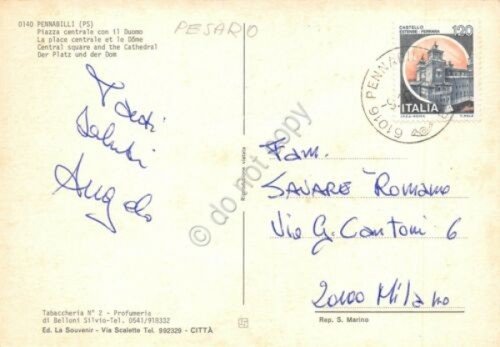 0140 PENNABILLI (PS)
Piazza centrale con il Duomo
La place centrale et le Dôme
Central square and the Cathedral
Der Platz und der Dom
PESARO
CASTELLO
ESTENSE FERRARA
120
ITALIA
61016 PENNABILLI
Tanti
Saluti
Angelo
Fam.
SAVARÈ Romano
Via G. Cantoni 6
20100 Milano
Riproduzione vietata
do not copy
Tabaccheria N° 2 - Profumeria
di Belloni Silvio-Tel. 0541/918332
Ed. La Souvenir - Via Scalette Tel. 992329 - CITTÀ
Rep. S. Marino